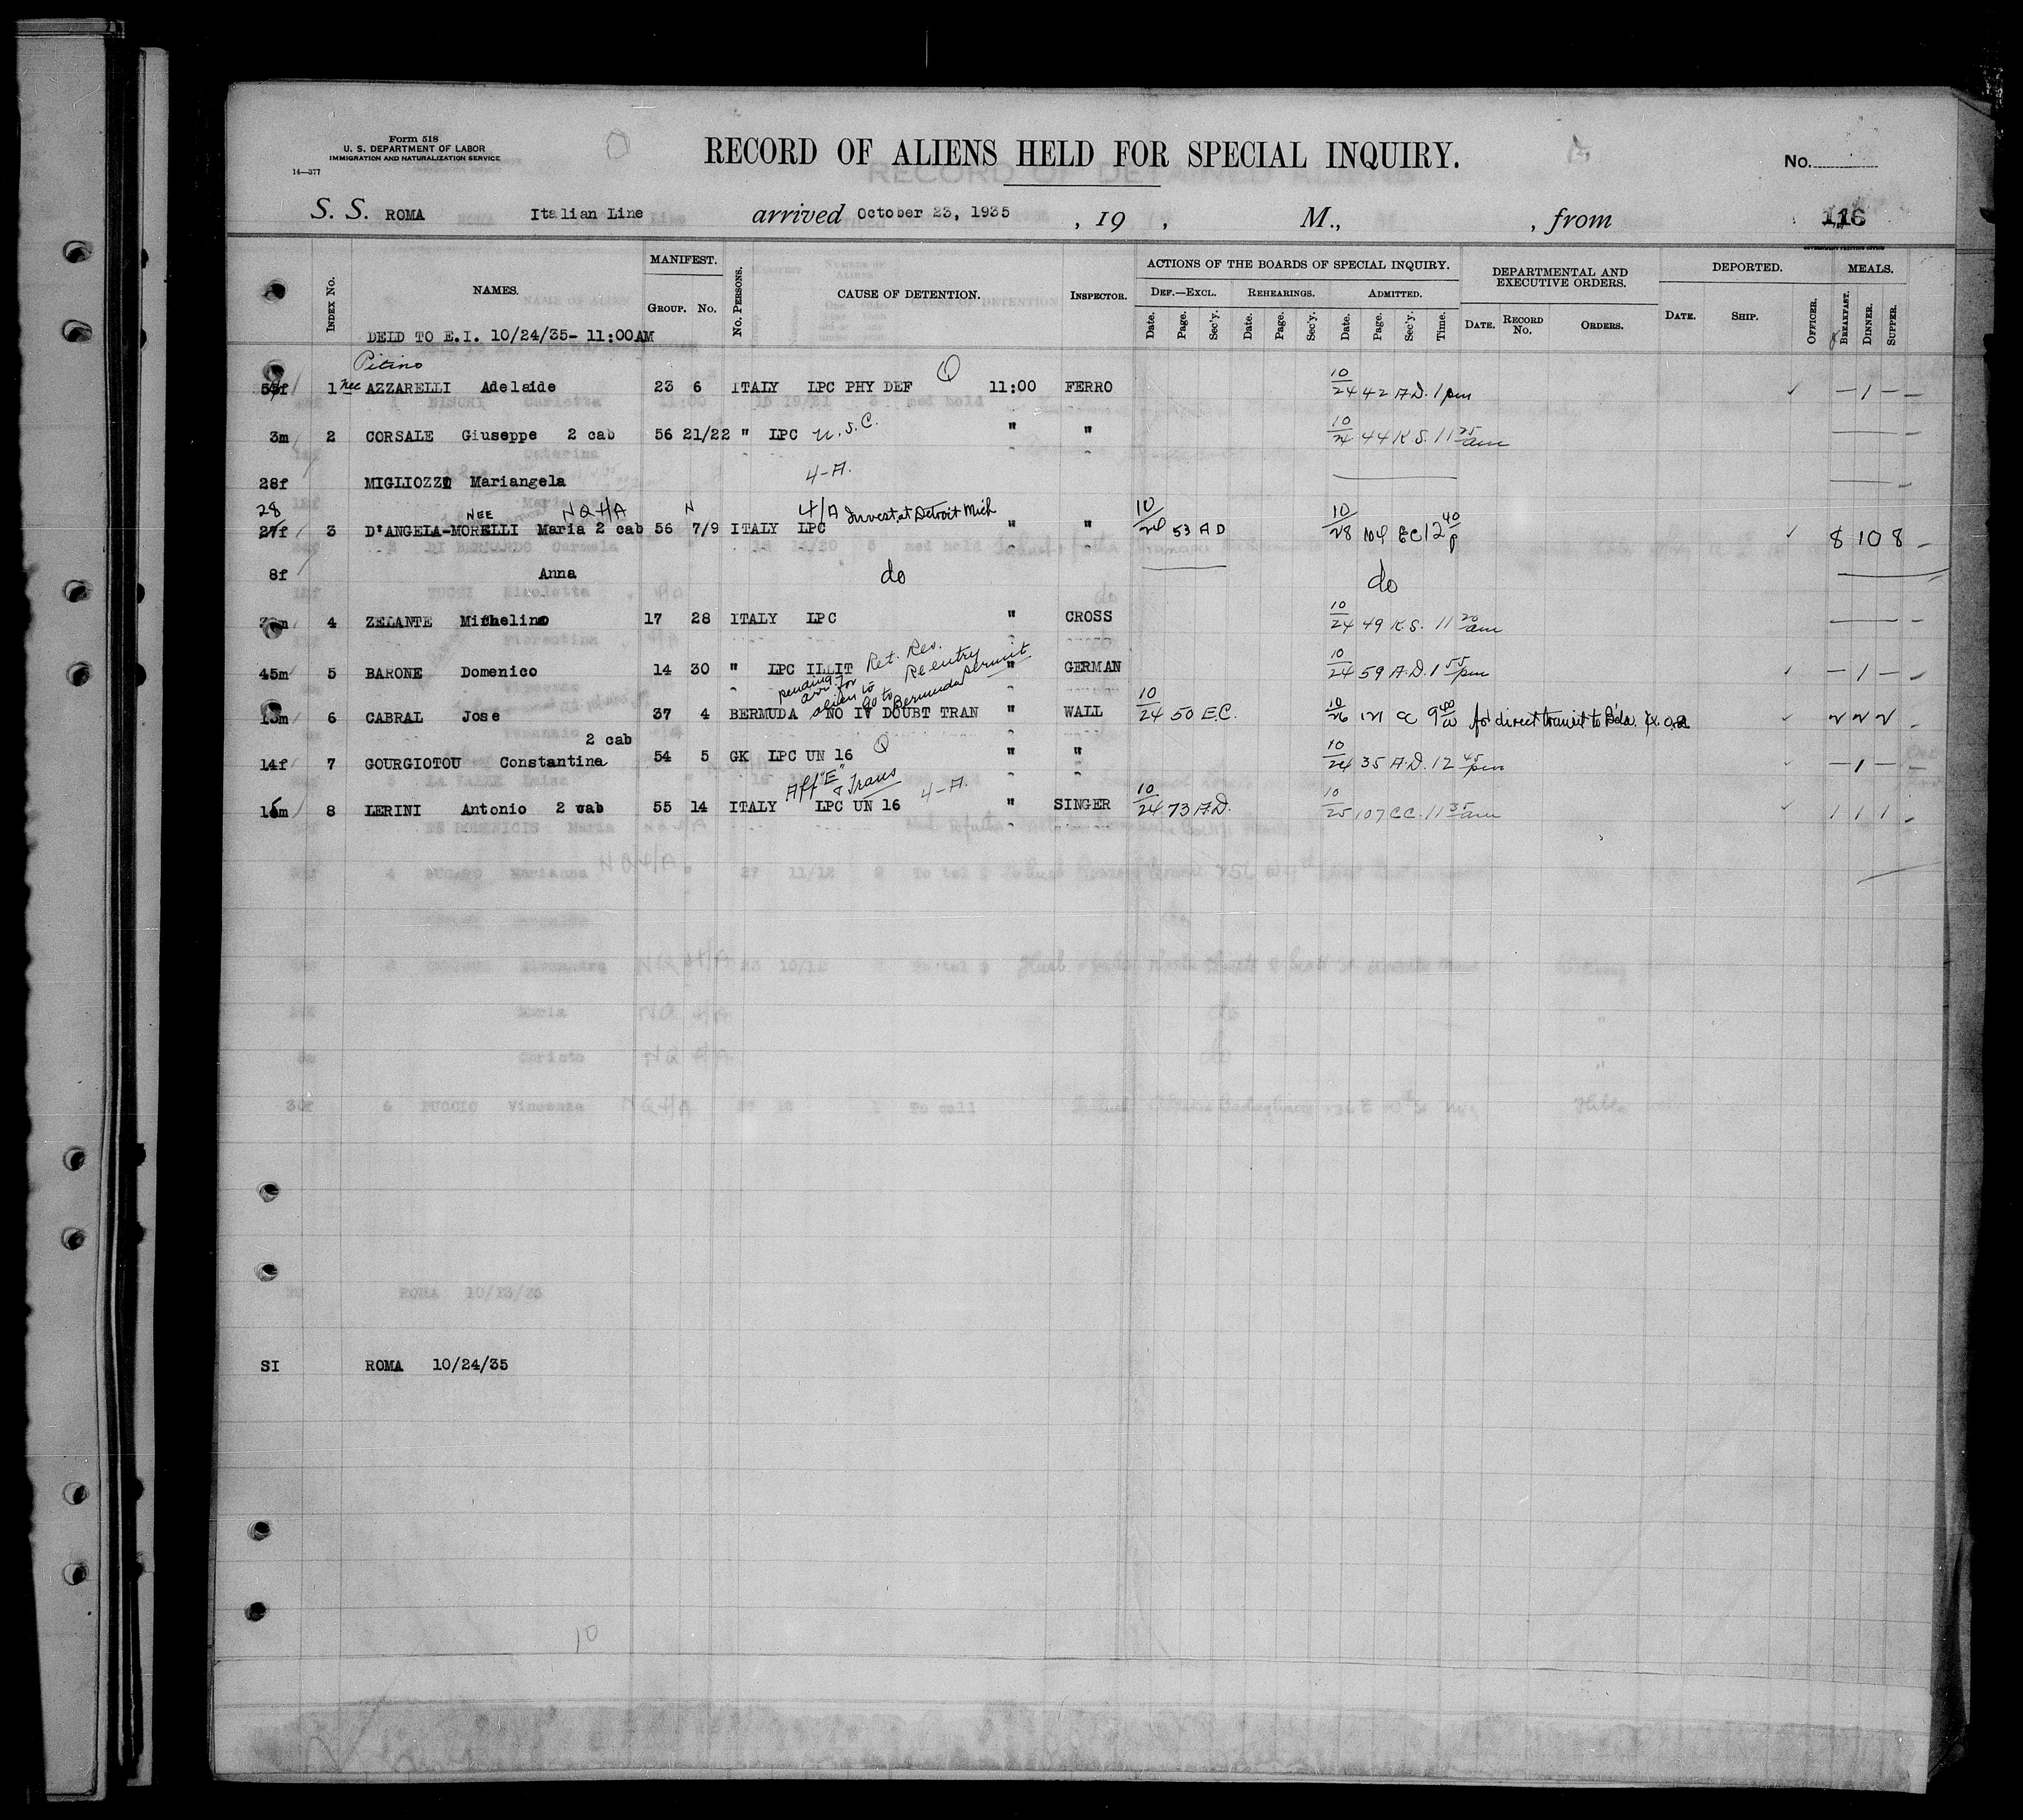 Form 518
U. S. DEPARTMENT OF LABOR
IMMIGRATION AND NATURALIZATION SERVICE
14—377
RECORD OF ALIENS HELD FOR SPECIAL INQUIRY.
No.
S. S. ROMA Italian Line arrived October 23, 1935 , 19 , M., , from 116
INDEX No. NAMES. MANIFEST. GROUP. No. No. PERSONS. CAUSE OF DETENTION. INSPECTOR. ACTIONS OF THE BOARDS OF SPECIAL INQUIRY. DEF.—EXCL. Date. Page. Sec'y. REHEARINGS. Date. Page. Sec'y. ADMITTED. Date. Page. Sec'y. Time. DEPARTMENTAL AND EXECUTIVE ORDERS. DATE. RECORD No. ORDERS. DEPORTED. DATE. SHIP. OFFICER. MEALS. BREAKFAST. DINNER. SUPPER.
DELD TO E.I. 10/24/35- 11:00AM
Pitino
1 nee AZZARELLI Adelaide 23 6 ITALY LPC PHY DEF Q 11:00 FERRO 10/24 42 A.D. 1 pm — 1 —
3m 2 CORSALE Giuseppe 2 cab 56 21/22 " LPC U.S.C. " " 10/24 44 K.S. 11 25 am
28f MIGLIOZZI Mariangela 4-A.
28 NEE NQ4/A N 4/A Invest. at Detroit Mich
27f 3 D'ANGELA-MORELLI Maria 2 cab 56 7/9 ITALY LPC " " 10/24 53 A D 10/28 EC 12 40 p 8 10 8
8f Anna do do
4 ZELANTE Michelino 17 28 ITALY LPC " CROSS 10/24 49 K.S. 11 20 am
45m 5 BARONE Domenico 14 30 " LPC ILLIT Ret. Res. Reentry permit " GERMAN 10/24 59 A.D. 1 55 pm — 1 —
pending arr for alien to go to Bermuda
6 CABRAL Jose 37 4 BERMUDA NO IV DOUBT TRAN " WALL 10/24 50 E.C. 10/26 9 40 a for direct transit to Bda.
2 cab
14f 7 GOURGIOTOU Constantina 54 5 GK LPC UN 16 Q " " 10/24 35 A.D. 12 45 pm — 1 —
Aff "E" & Trans 4-A.
15m 8 LERINI Antonio 2 cab 55 14 ITALY LPC UN 16 " SINGER 10/24 73 A.D. 10/25 107 C.C. 11 35 am 1 1 1
SI ROMA 10/24/35
10